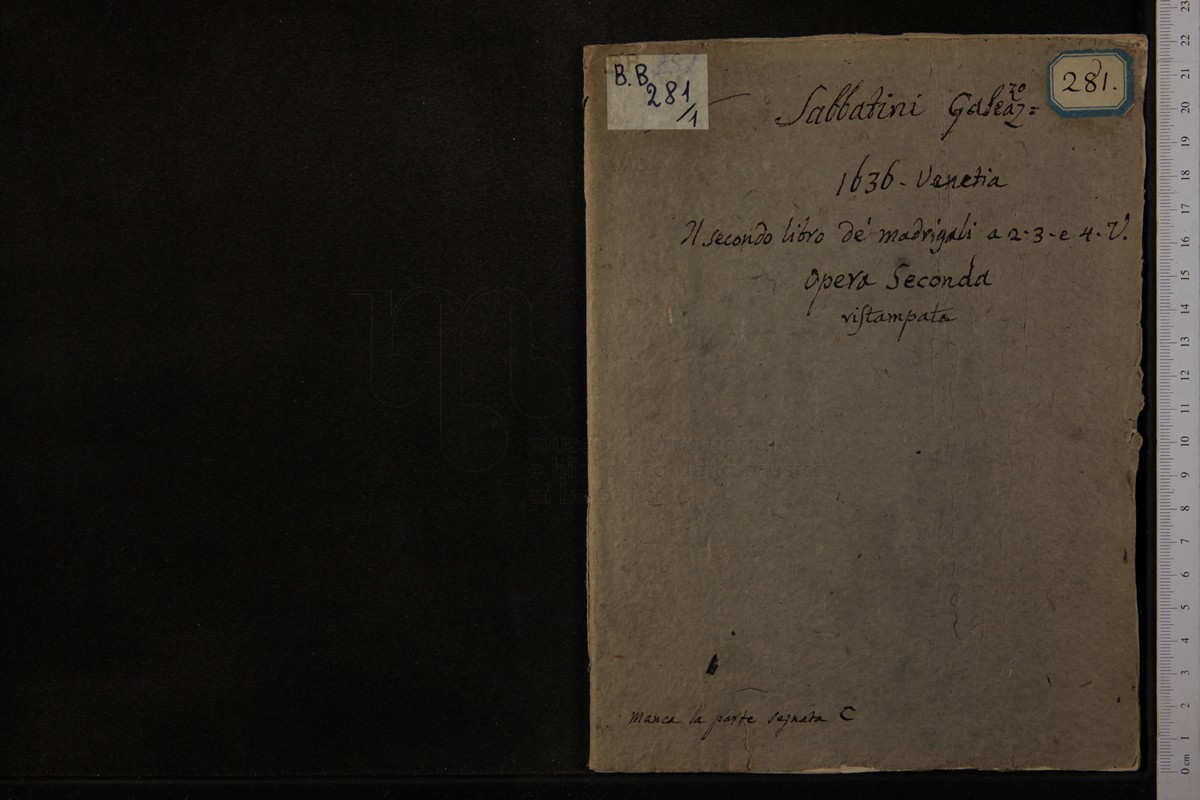 B.B.
281
/1
281.
Sabbatini Galeaz.zo=
1636 - Venetia
Il secondo libro de' madrigali a 2-3-e 4-V.
Opera Seconda
ristampata
manca la parte segnata C
23
22
21
20
19
18
17
16
15
14
13
12
11
10
9
8
7
6
5
4
3
2
1
0 cm